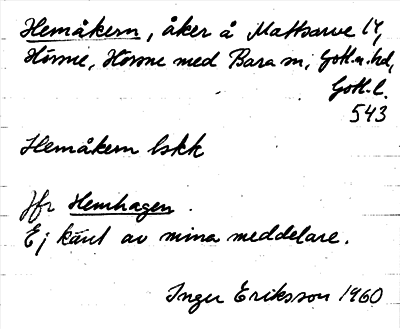 Hemåkern, åker å Mattsarve 14,
Hörsne, Hörsne med Bara sn, Gotl. n. hd,
Gotl. l.
543
Hemåkern lskk
Jfr Hemhagen.
Ej känt av mina meddelare.
Inger Eriksson 1960